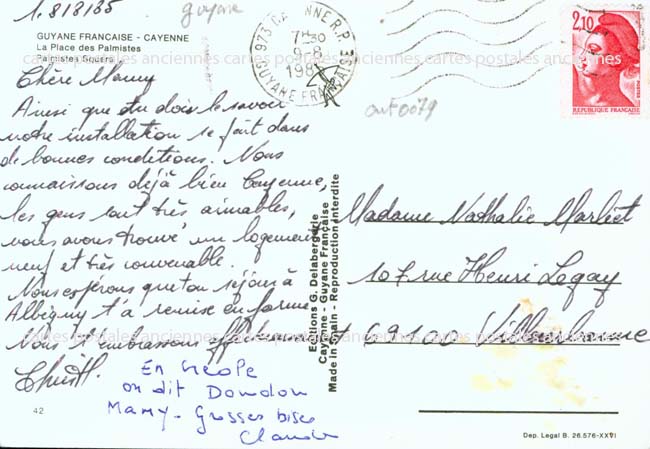 1.818185
guyane
GUYANE FRANCAISE - CAYENNE
La Place des Palmistes
Palmisten Square
973 CAYENNE R.P.
7H30
9-8
198
GUYANE FRANÇAISE
2,10
REPUBLIQUE FRANÇAISE
cartes postales anciennes cartes postales anciennes cartes postales anciennes
Chère Mamy
Ainsi que tu dois le savoir
notre installation se fait dans
de bonnes conditions. Nous
connaissons déjà bien Cayenne,
les gens sont très aimables,
nous avons trouvé un logement
neuf et très convenable.
Nous espérons que ton séjour à
Albigny t'a remise en forme
Nous t'embrassons affectueusement
En créole
on dit Doudou
Mamy - Grosses bises
Claude
42
Editions G. Delabergerie
Cayenne - Guyane Française
Made in Spain - Reproduction interdite
Madame Nathalie Marliet
107 rue Henri Legay
69100 Villeurbanne
cartes postales anciennes cartes postales anciennes cartes postales anciennes
Dep. Legal B. 26.576-XXVI